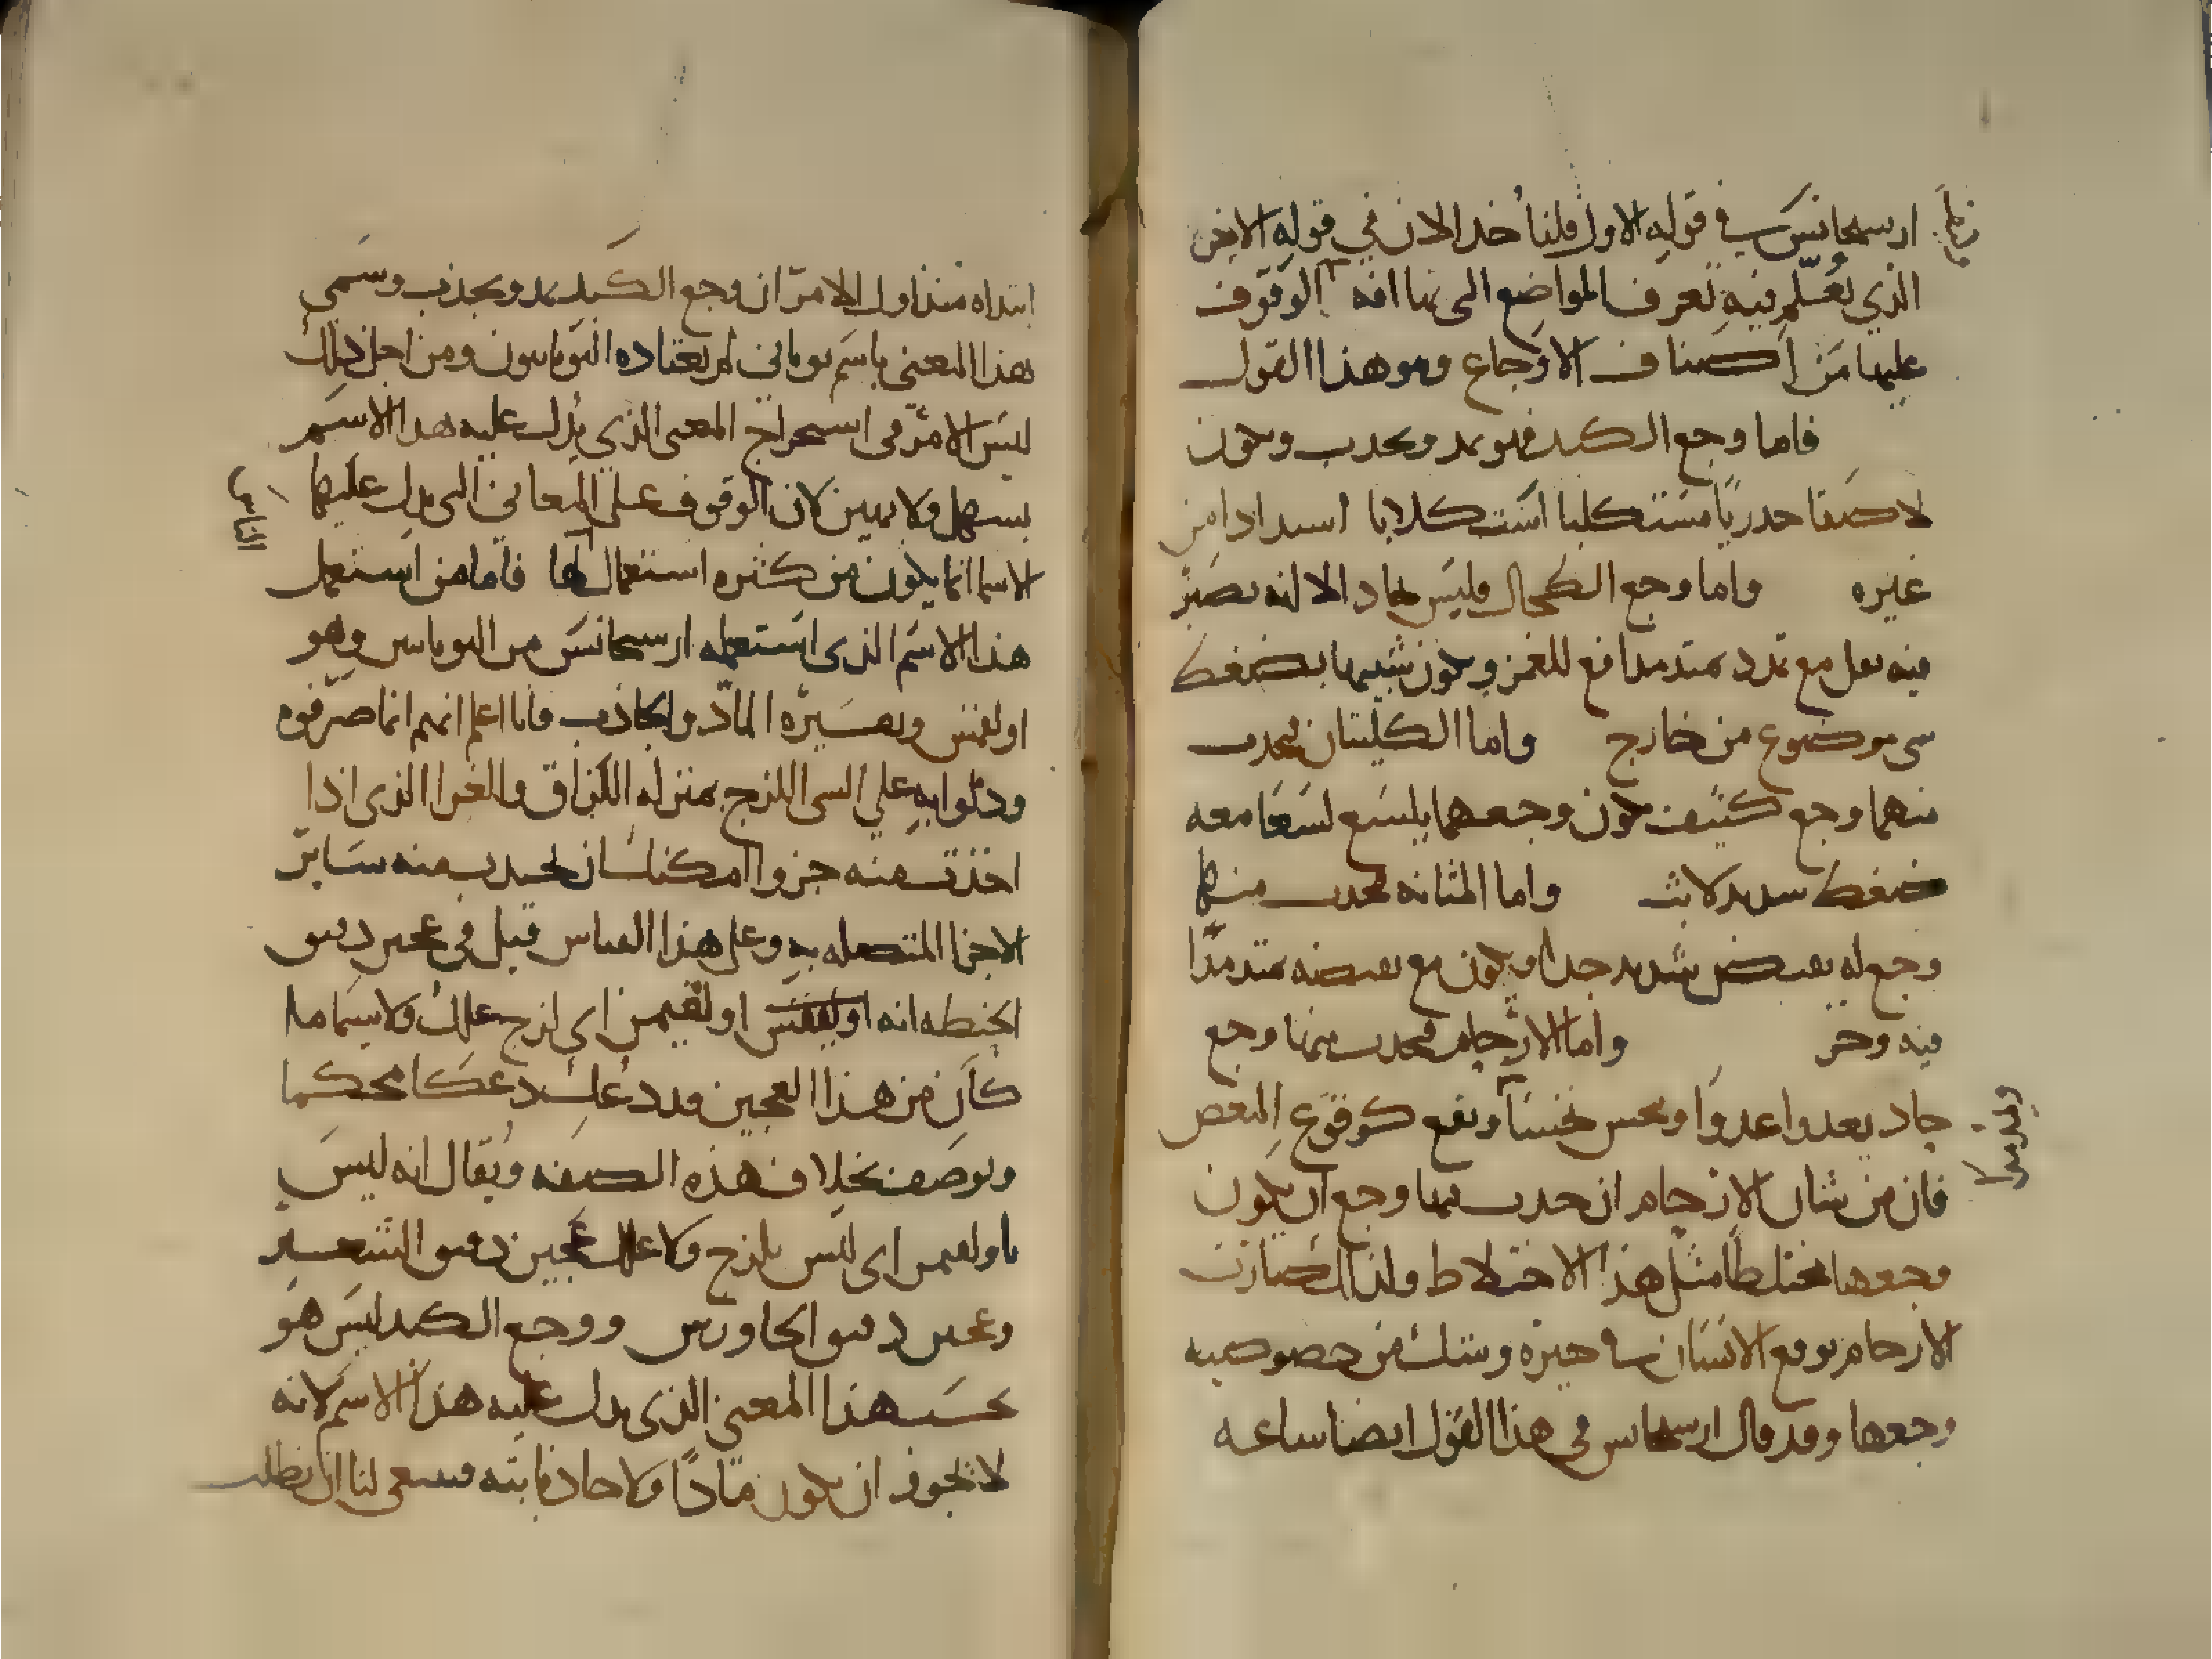 ارسحانس في قوله الاول فلناخد الان في قوله الاخر
الذي يعلم فيه تعرف المواضع التى بها افه الوقوف
عليها من اصناف الاوجاع وهو هذا القول
فاما وجع الكبد فهو يمد ويحدب ويكون
لاصقا حدريا مستكلبا اشد استدادا من
غيره واما وجع الطحال فليس بحاد الا انه يصير
فيه ثقل مع تمدد ممتد مدافع للغمز ويكون شبيها بضغط
شى موضوع من خارج واما الكليتان فيحدث
منهما وجع كثيف يكون وجعهما يلسع لسعا معه
ضغط شديد لابث واما المثانه فيحدث منها
وجع له يقبض شديد جدا ويكون مع قبضه ممتد مدا
فيه وخز واما الارحام فيحدث منها وجع
حاد يعدوا عدوا وينخس نخسا ويقع كوقوع المغص
فان من شان الارحام ان حدث بها وجع ان يكون
وجعها مختلطا مثل هذا الاختلاط ولذلك صارت
الارحام توقع الانسان في حيره وشك من خصوصيه
وجعها وقد قال ارسحانس في هذا القول ايضا ساعه
ابتداه منذ اول الامر ان وجع الكبد يمد ويجذب وسمى
هذا المعنى باسم يونانى لم يعتاده اليونانيون ومن اجل ذلك
ليس الامر في استخراج المعنى الذي يدل عليه هذا الاسم
بسهل ولا بهين لان الوقوف على المعانى التى يدل عليها
الاسما انما يكون من كثره استعمالها فاما من استعمل
هذا الاسم الذى استعمله ارسحانس من اليونانيين وهو
اولقمس وتفسيره الماد والجاذب فانا اعلم انهم انما صرفوه
ودلوا به على الشى اللزج بمنزله اللزاق والغرا الذى اذا
اخذت منه جزوا امكنك ان تجذب منه ساير
الاجزا المتصله به وعلى هذا القياس قيل في عجين دقيق
الحنطه انه اولقيمن اى لزج علك ولا سيما ما
كان من هذا العجين قد دعك دعكا محكما
وتوصف بخلاف هذه الصفه ويقال انه ليس
باولقيمن اى ليس بلزج ولا علك عجين دقيق الشعير
وعجين دقيق الجاورس ووجع الكبد ليس هو
بحسب هذا المعنى الذى يدل عليه هذا الاسم لانه
لا يجوز ان يكون مادا ولا جاذبا بته فينبغى لنا ان نطلب